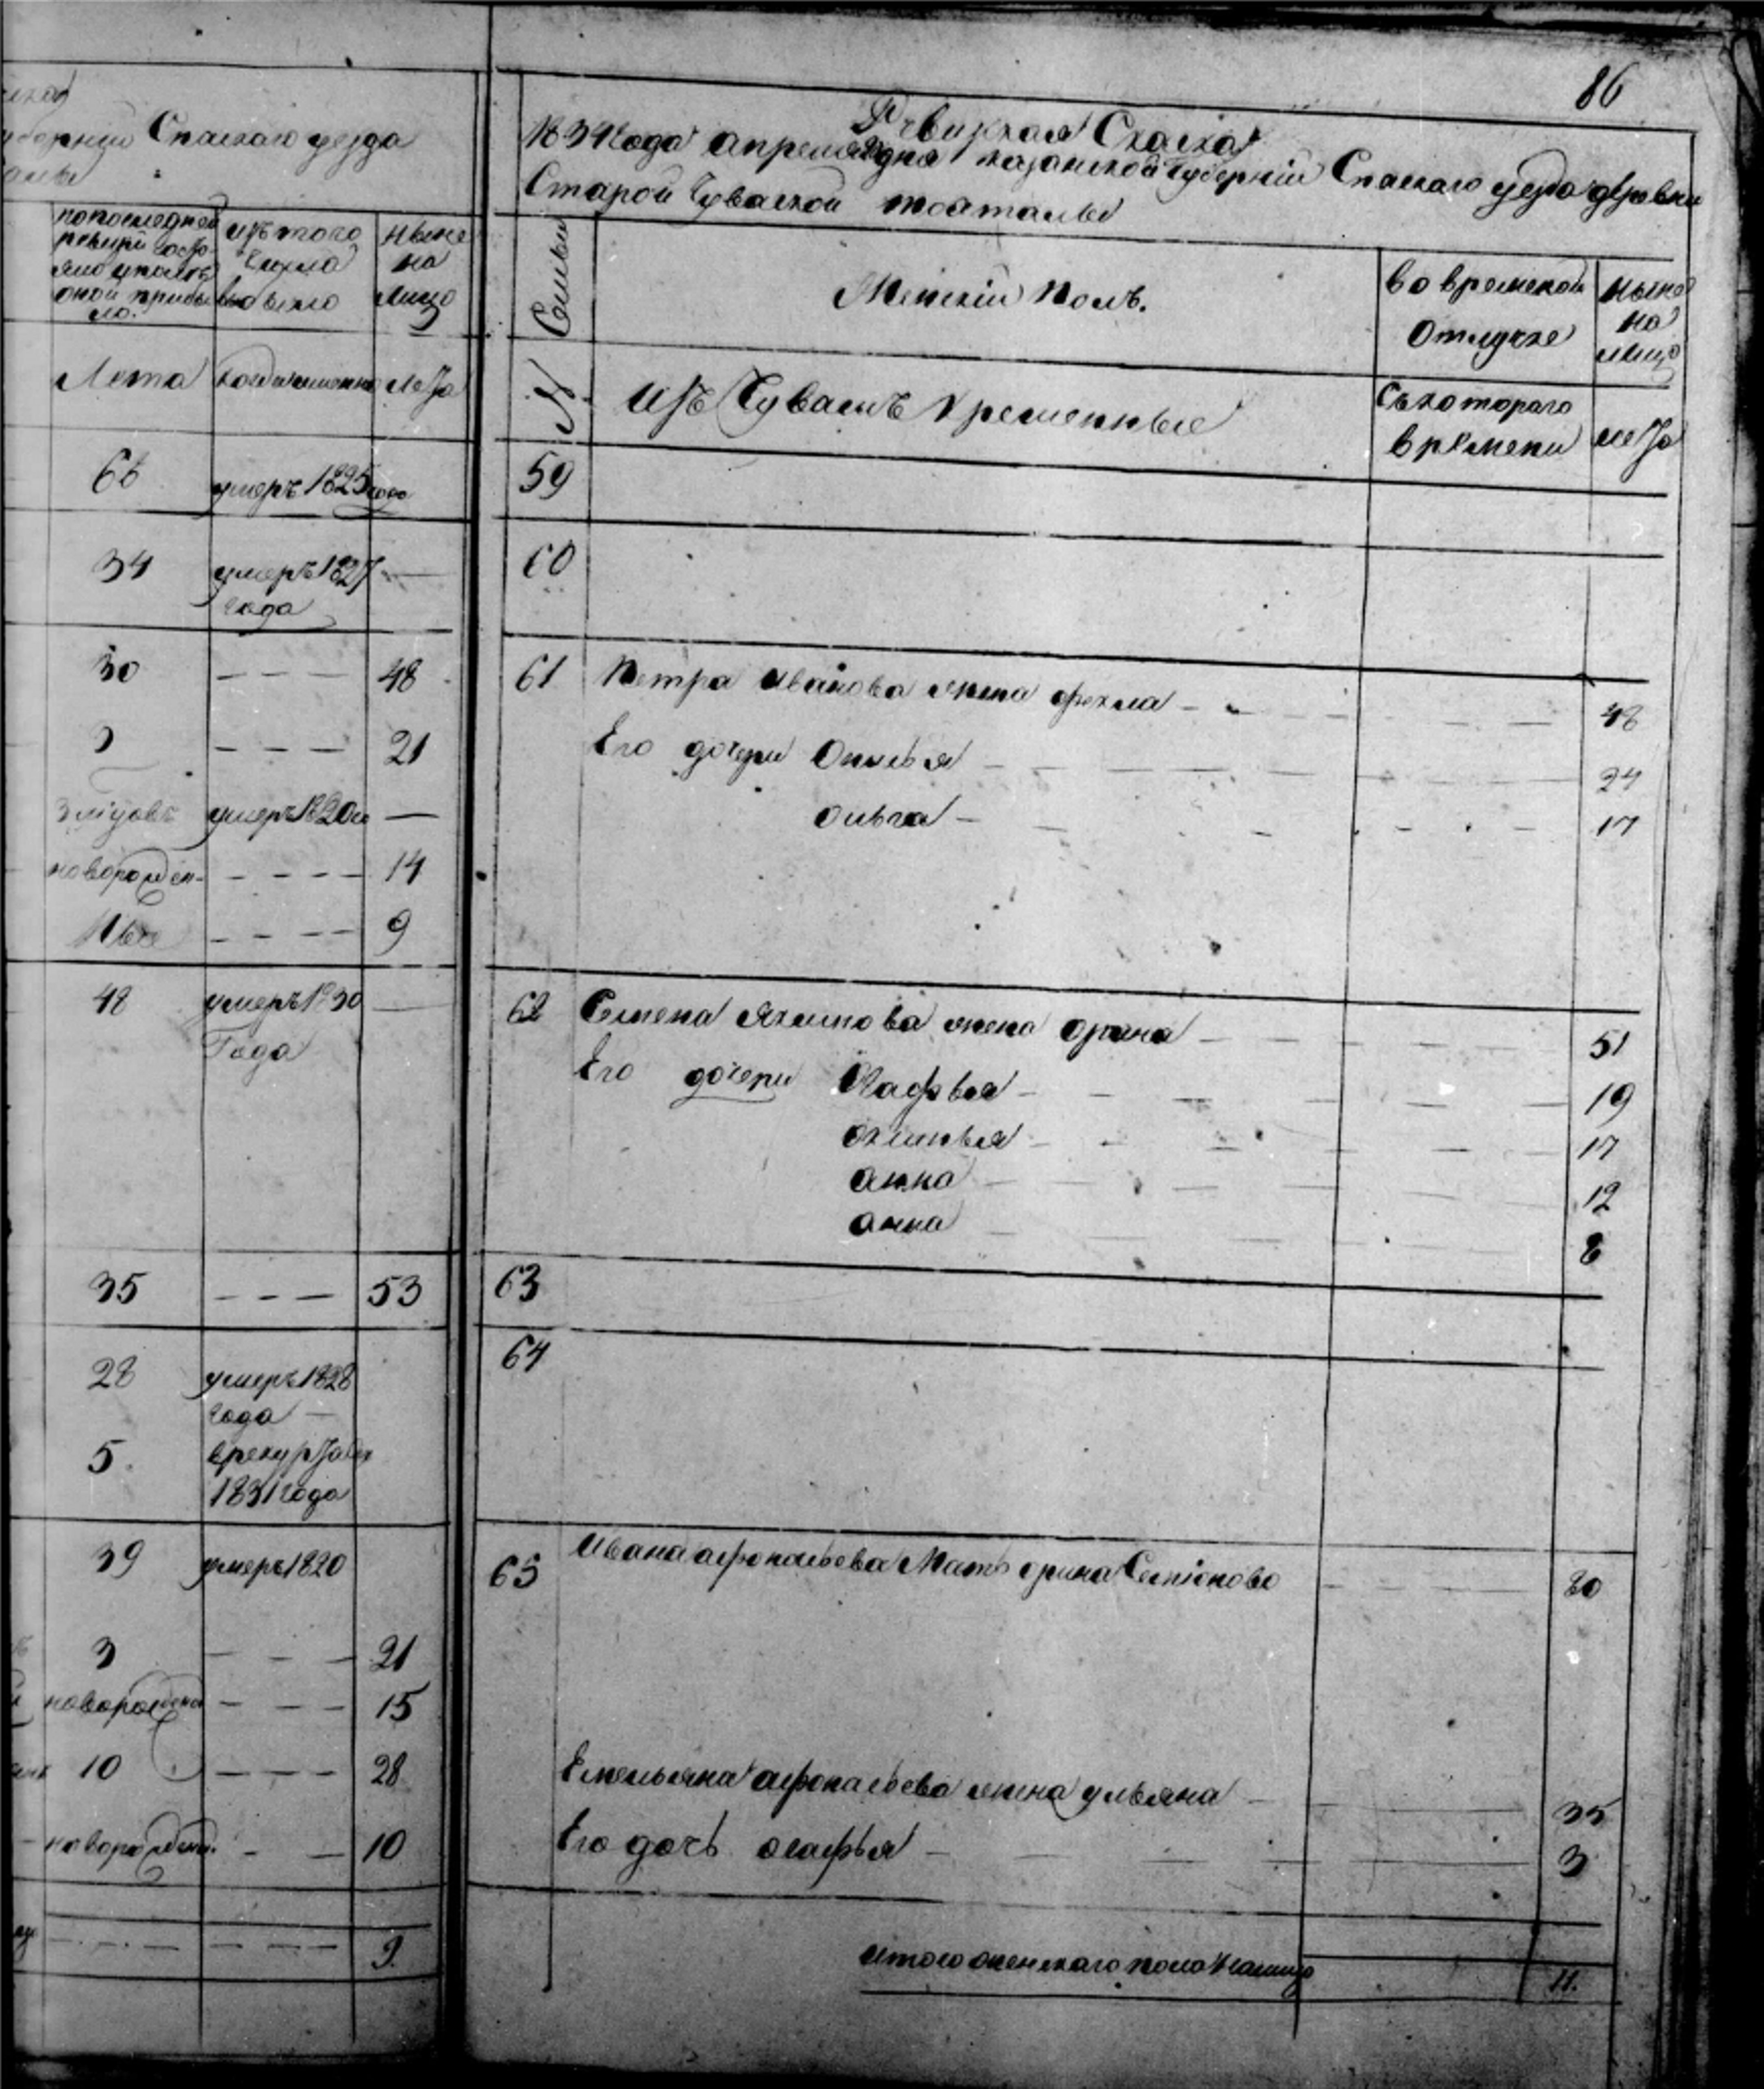 уберніи Спаскаго уезда
по последней
ревизіи состо
яло и после
оной прибы
ло.
изъ того
числа
выбыло
ныне
на
лицо
Лета
когда именно
лета
66
умеръ 1825 года
34
умеръ 1827 —
года
30 — — — 48
3 — — — 21
умеръ 1820 —
новорожден- — — — — 14
— — — — 9
48 умеръ 1830 —
Года
35 — — — 53
28 умеръ 1828
года —
5. в рекрутах
1831 года
39 умеръ 1820
3 — — — 21
новорожденна — — — 15
10 — — — 28
новорожден. — — 10
— — — — — — 9.
86
Ревизкая Скаска
1834 года апреля дня казанской Губерніи Спаскаго уезда деревни
Старой Чуваской
Семьи
Женскій Полъ.
во временной
Отлучке
ныне
на
лицо
№
Изъ Чувашъ Крещенные
Съ котораго
времени
лета
59
60
61 Петра Иванова жена фекла — — — — 48
Его дочери — — — 24
ольга — — — 17
62 Семена жена орина — — — 51
Его дочери Агафья — — — 19
— — — 17
Анна — — — 12
Анна — — — 8
63
64
65 Ивана афонасьева Мать орина Семіонова — — — 80
Емельяна афонасьева жена ульяна — — — 35
Его дочь агафья — — — 3
Итого женскаго пола налицо 11.